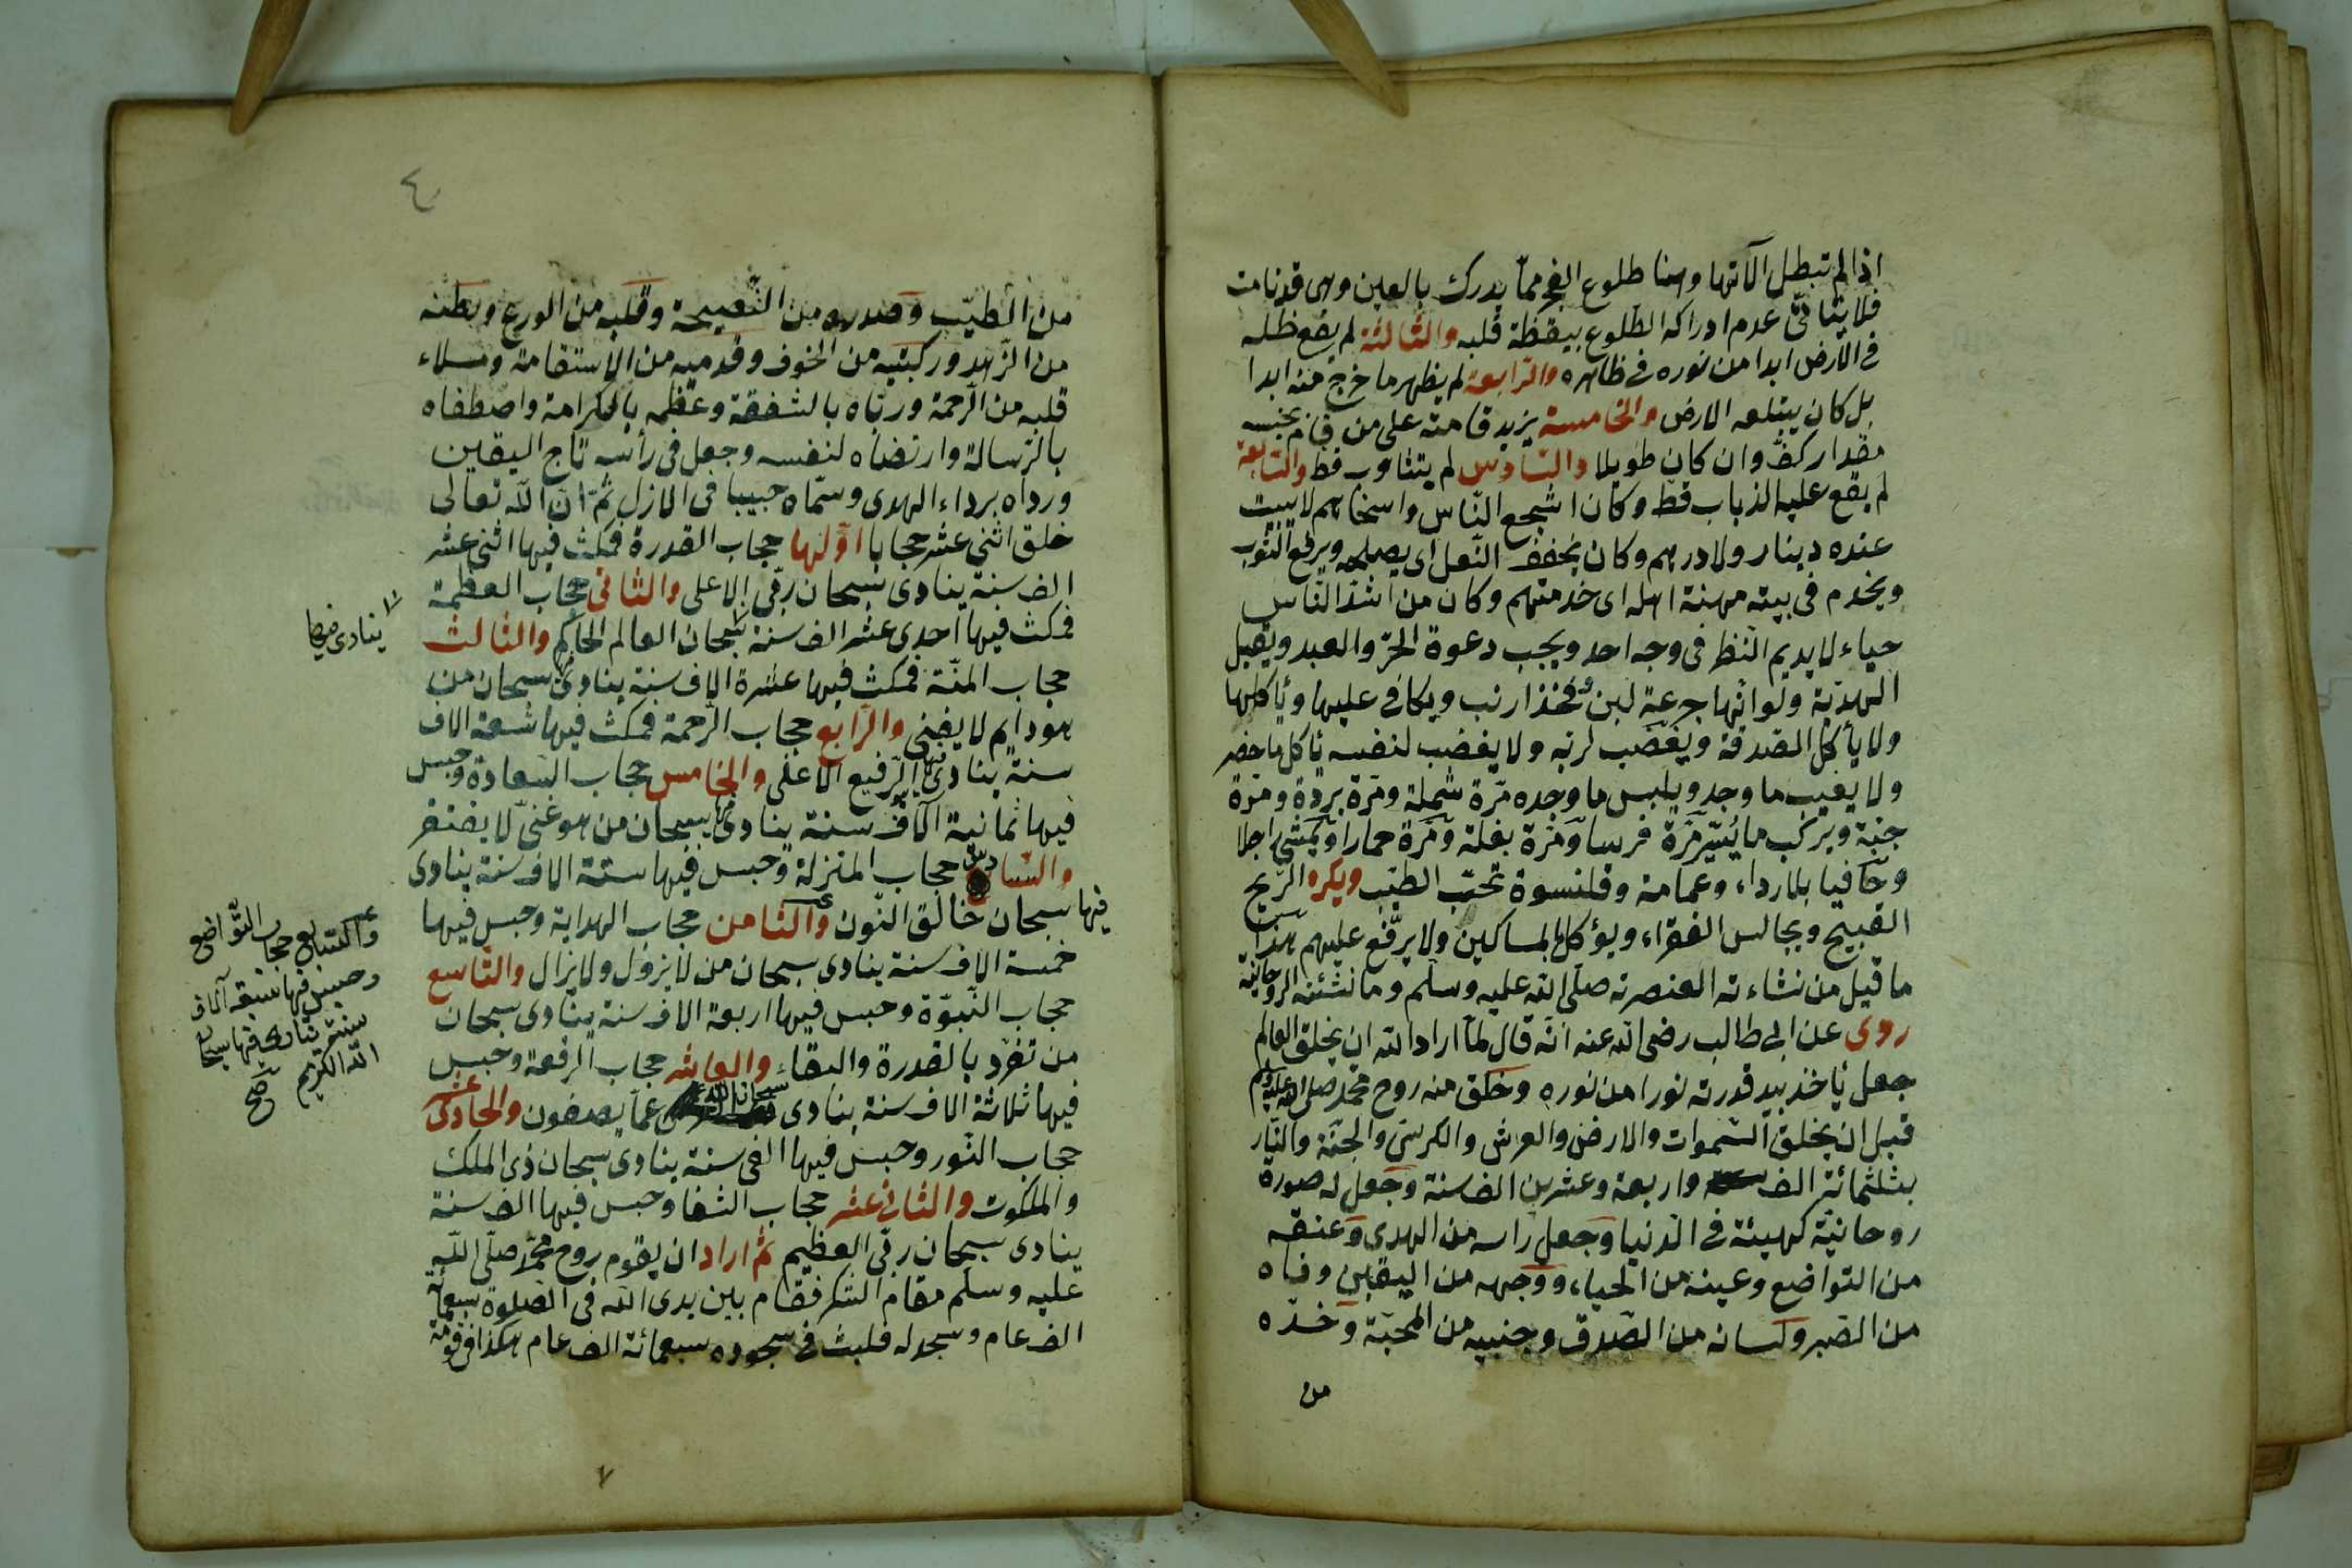 اذا لم تبطل آلاتها وهنا طلوع الفجر مما يدرك بالعين وهى قد نامت
فلا ينافى عدم ادراكه الطلوع بيقظة قلبه والثالثة لم يقع ظله
فى الارض ابدا من نوره فى ظاهره والرابعة لم يظهر ما خرج منه ابدا
بل كان يبتلعه الارض والخامسة يزيد قامته على من قام بجنبه
مقدار كف وان كان طويلا والسادس لم يتثاوب قط والسابعة
لم يقع عليه الذباب قط وكان اشجع الناس واسخاهم لا يبيت
عنده دينار ولا درهم وكان يخفف النعل اى يصلحه ويرقع الثوب
ويخدم فى بيته مهنة اهله اى خدمتهم وكان من اشد الناس
حياء لا يديم النظر فى وجه احد ويجب دعوة الحر والعبد ويقبل
الهدية ولو انها جرعة لبن وفخذ ارنب ويكافى عليها ويأكلها
ولا يأكل الصدقة ويغضب لربه ولا يغضب لنفسه يأكل ما حضر
ولا يعيب ما وجد ويلبس ما وجده مرة شملة ومرة بردة ومرة
جبة ويركب ما يُيسّر مرة فرسا ومرة بغلة ومرة حمارا ويمشى راجلا
وحافيا بلا رداء وعمامة وقلنسوة تحب الطيب ويكره الريح
القبيح ويجالس الفقراء ويؤكل المساكين ولا يرفع عليهم هذا
ما قيل من نشاءته العنصرته صلى الله عليه وسلم وما نشئته الروحانية
روى عن ابى طالب رضى الله عنه انه قال لما اراد الله ان يخلق العالم
جعل يأخذ بيد قدرته نورا من نوره وخلق منه روح محمد صلى الله عليه وسلم
قبل ان يخلق السموات والارض والعرش والكرسى والجنة والنار
بثلثمائة الف واربعة وعشرين الف سنة وجعل له صورة
روحانية كهيئة فى الدنيا وجعل راسه من الهدى وعنقه
من التواضع وعينه من الحياء ووجهه من اليقين وفاه
من الصبر ولسانه من الصدق وجنبيه من المحبة وخده
من
٤
من الطيب وصدره من النصيحة وقلبه من الورع وبطنه
من الزهد وركبتيه من الخوف وقدميه من الاستقامة وملاء
قلبه من الرحمة ورباه بالشفقة وعظمه بالكرامة واصطفاه
بالرسالة وارتضاه لنفسه وجعل فى رأسه تاج اليقين
ورداه برداء الهدى وسماه حبيبا فى الازل ثم ان الله تعالى
خلق اثنى عشر حجابا اولها حجاب القدرة فمكث فيها اثنى عشر
الف سنة ينادى سبحان ربى الاعلى والثانى حجاب العظمة
فمكث فيها احدى عشر الف سنة سبحان العالم الحاكم والثالث
ينادى فيها
حجاب المنة فمكث فيها عشرة الاف سنة ينادى سبحان من
هو دايم لا يفنى والرابع حجاب الرحمة فمكث فيها تسعة الاف
سنة ينادى فيها الرفيع الاعلى والخامس حجاب السعادة وحبس
فيها ثمانية آلاف سنة ينادى فيها سبحان من هو غنى لا يفتقر
والسادس حجاب المنزلة وحبس فيها ستة الاف سنة ينادى
فيها سبحان خالق النون والثامن حجاب الهداية وحبس فيها
والسابع حجاب التواضع
وحبس فيها سبعة آلاف
سنة ينادى فيها سبحان
الله الكريم صح
خمسة الاف سنة ينادى سبحان من لا يزول ولا يزال والتاسع
حجاب النبوة وحبس فيها اربعة الاف سنة ينادى سبحان
من تفرد بالقدرة والبقاء والعاشر حجاب الرفعة وحبس
فيها ثلاثة الاف سنة ينادى سبحان الله عما يصفون والحادى عشر
حجاب النور وحبس فيها الفى سنة ينادى سبحان ذى الملك
والملكوت والثانى عشر حجاب الشفا وحبس فيها الف سنة
ينادى سبحان ربى العظيم ثم اراد ان يقوم روح محمد صلى الله
عليه وسلم مقام الشكر فقام بين يدى الله فى الصلوة سبعمائة
الف عام وسجد له فلبث فى سجوده سبعمائة الف عام هكذا فى قومة
٧